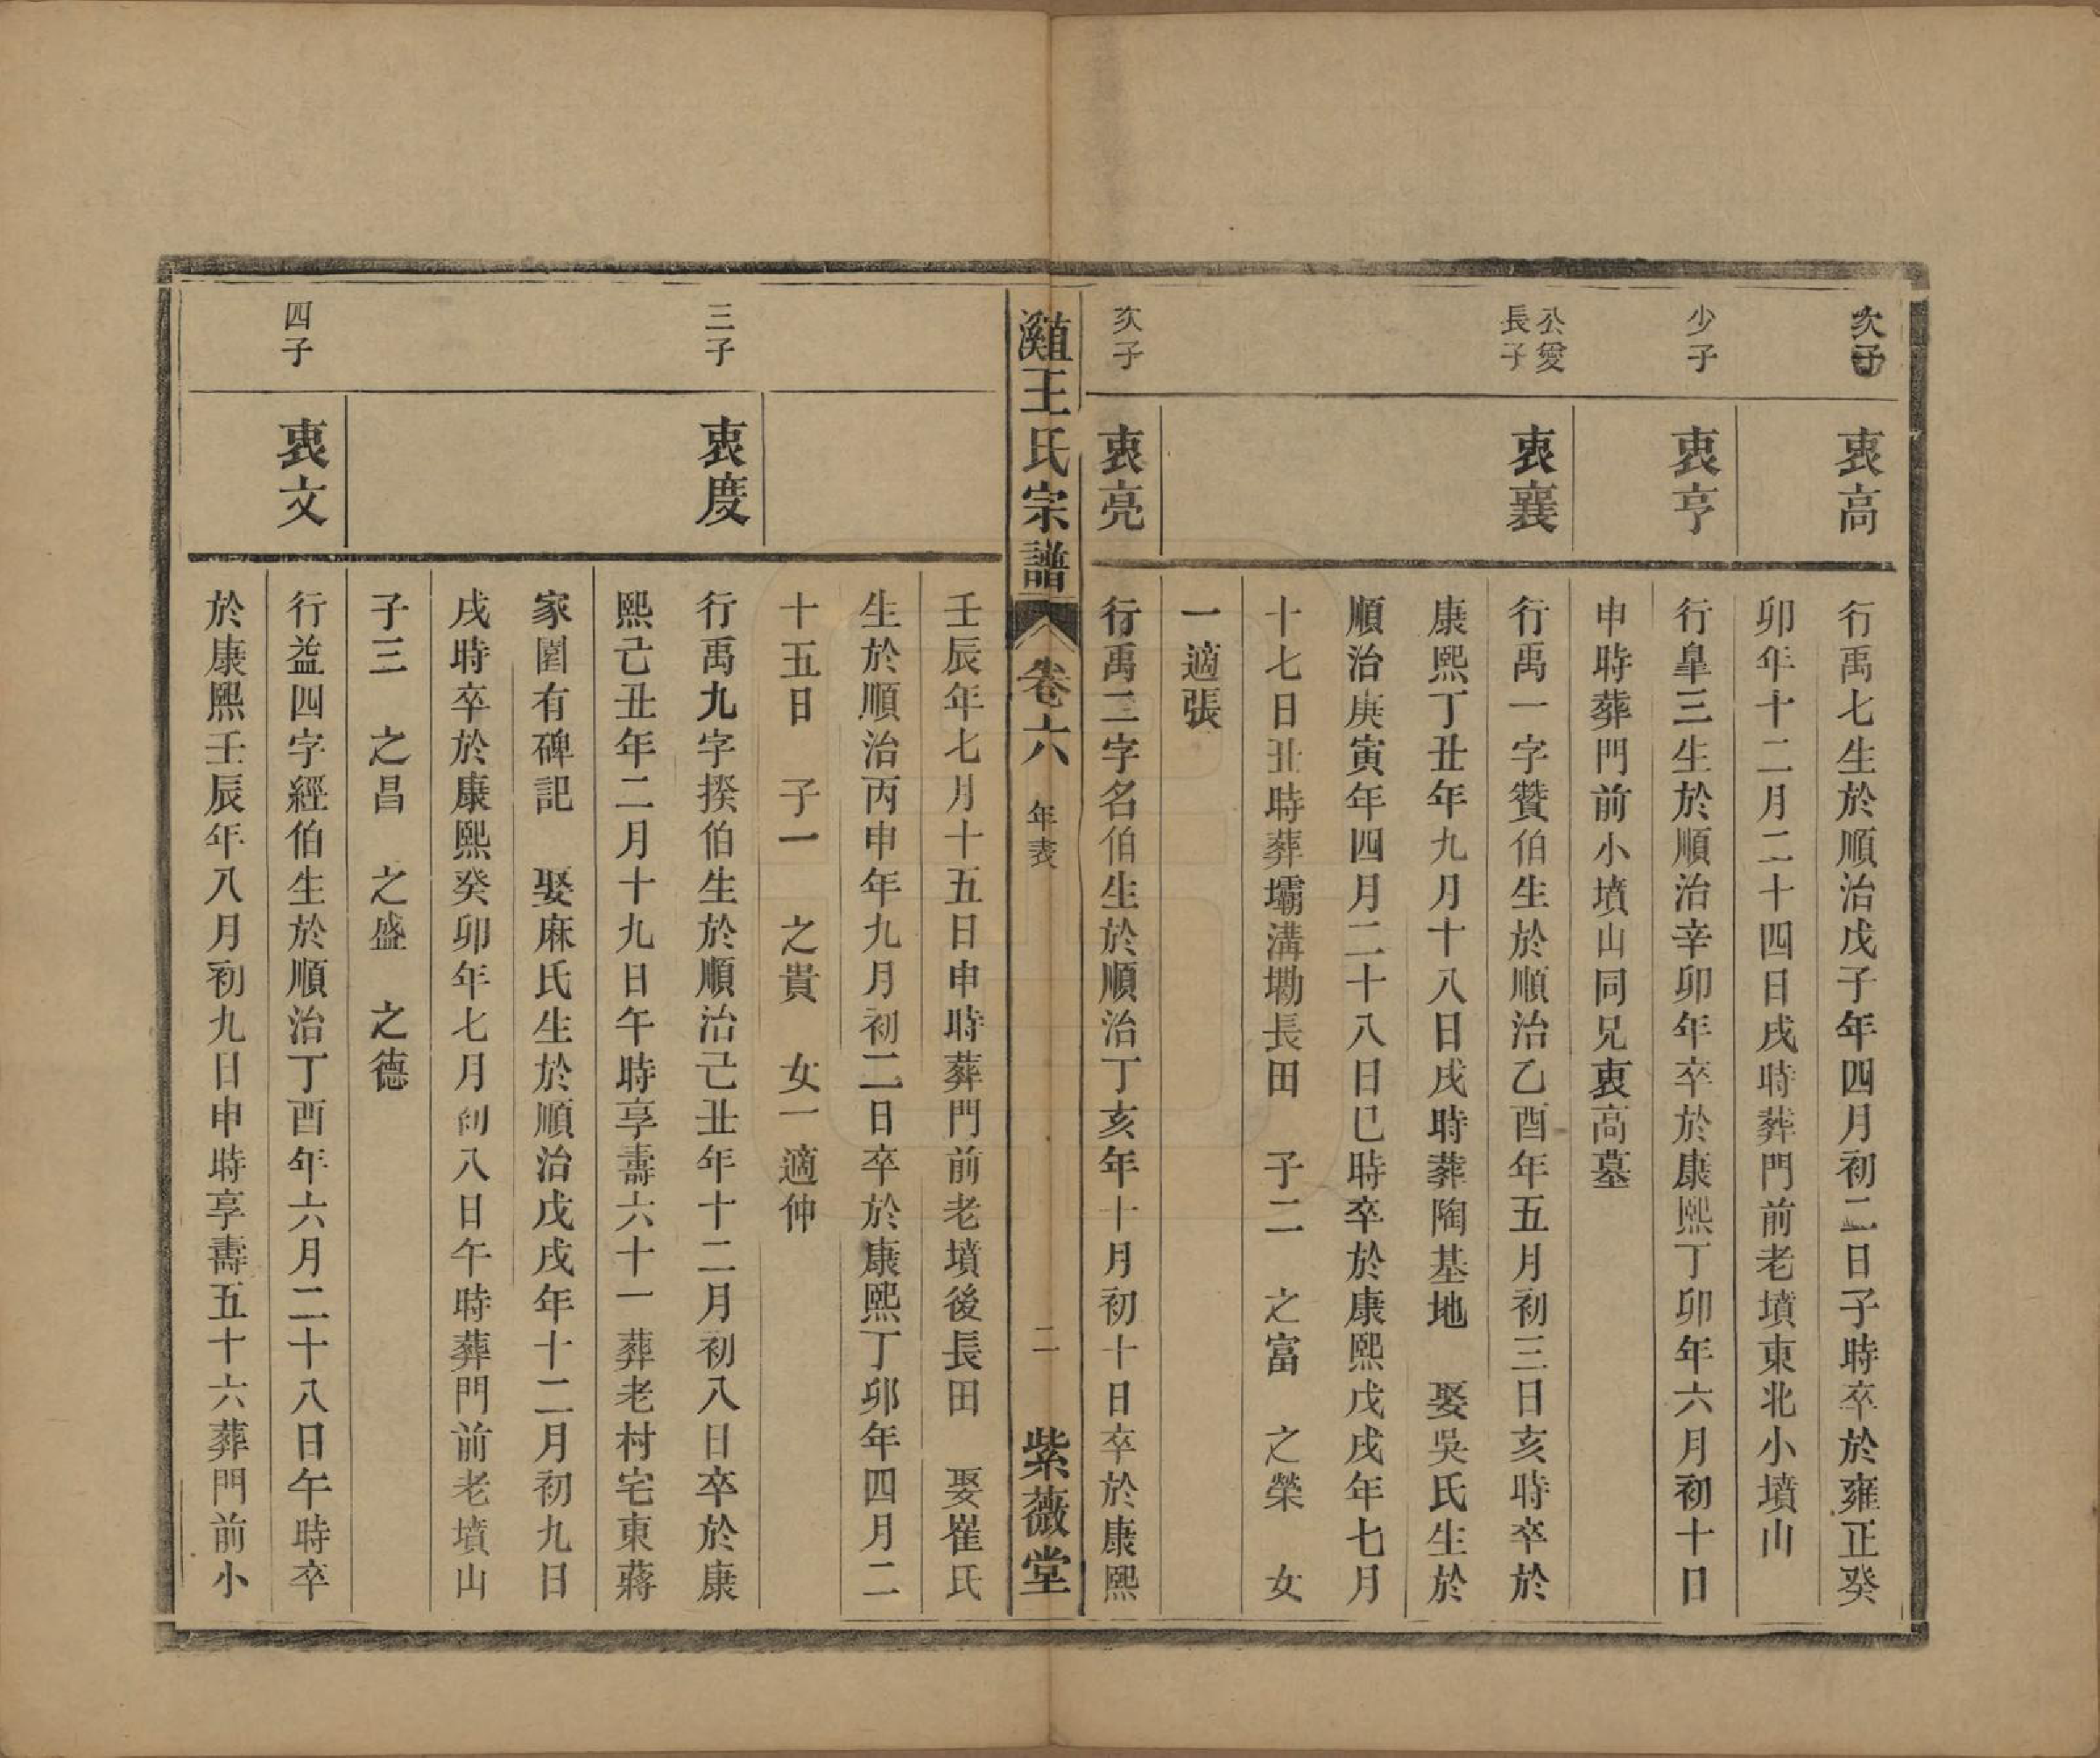 次子
衷高
行禹七生於順治戊子年四月初二日子時卒於雍正癸
卯年十二月二十四日戌時葬門前老墳東北小墳山
少子
衷亨
行皐三生於順治辛卯年卒於康熙丁卯年六月初十日
申時葬門前小墳山同兄衷高墓
公愛
長子
衷襄
行禹一字贊伯生於順治乙酉年五月初三日亥時卒於
康熙丁丑年九月十八日戌時葬陶基地 娶吳氏生於
順治庚寅年四月二十八日巳時卒於康熙戊戌年七月
十七日丑時葬壩溝墈長田 子二 之富 之榮 女
一適張
次子
衷亮
行禹二字名伯生於順治丁亥年十月初十日卒於康熙
王氏宗譜 卷六 年表 二 紫薇堂
壬辰年七月十五日申時葬門前老墳後長田 娶崔氏
生於順治丙申年九月初二日卒於康熙丁卯年四月二
十五日 子一 之貴 女一適仲
三子
衷度
行禹九字揆伯生於順治己丑年十二月初八日卒於康
熙己丑年二月十九日午時享壽六十一葬老村宅東蔣
家園有碑記 娶麻氏生於順治戊戌年十二月初九日
戌時卒於康熙癸卯年七月初八日午時葬門前老墳山
子三 之昌 之盛 之德
四子
衷文
行益四字經伯生於順治丁酉年六月二十八日午時卒
於康熙壬辰年八月初九日申時享壽五十六葬門前小